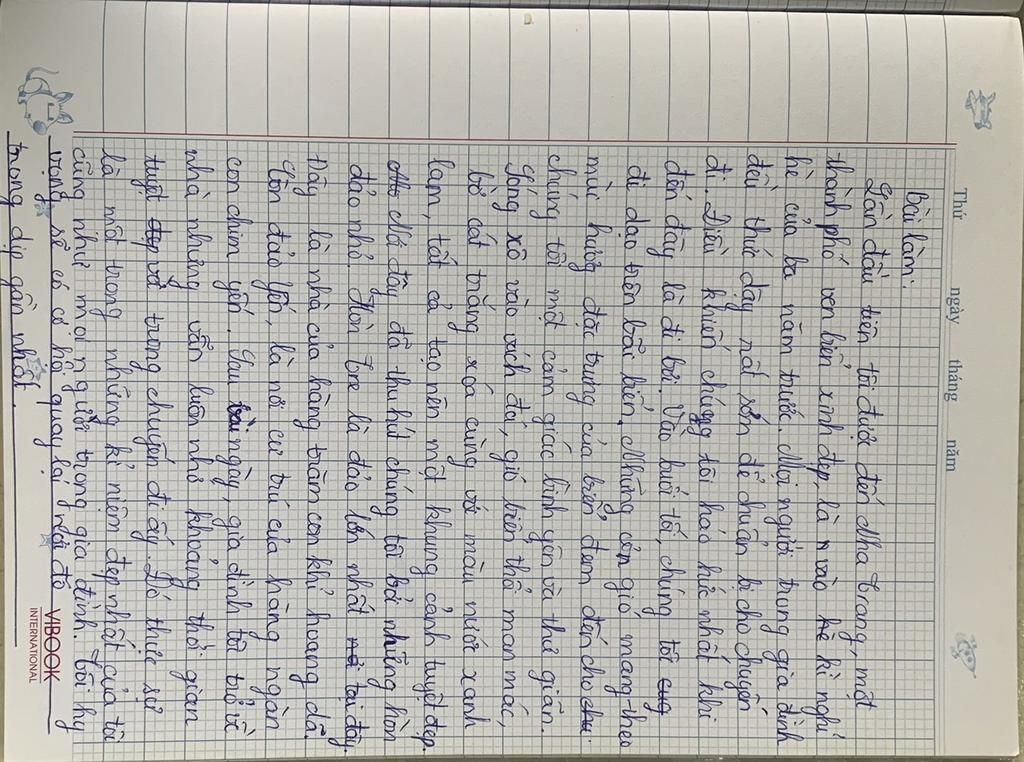 Thứ ngày tháng năm
Bài làm:
Lần đầu tiên tôi được đến Nha Trang, một
thành phố ven biển xinh đẹp, là vào kì nghỉ
hè của ba năm trước. Mọi người trong gia đình
đều thức dậy rất sớm để chuẩn bị cho chuyến
đi. Điều khiến chúng tôi háo hức nhất khi
đến đây là đi bơi. Vào buổi tối, chúng tôi
đi dạo trên bãi biển. Những cơn gió mang theo
mùi hương đặc trưng của biển đem đến cho
chúng tôi một cảm giác bình yên và thư giãn.
Sóng xô vào vách đá, gió biển thổi man mác,
bờ cát trắng xóa cùng với màu nước xanh
lam, tất cả tạo nên một khung cảnh tuyệt đẹp.
Nơi đây đã thu hút chúng tôi bởi những hòn
đảo nhỏ. Hòn Tre là đảo lớn nhất tại đây.
Đây là nhà của hàng trăm con khỉ hoang dã.
Còn đảo Yến, là nơi cư trú của hàng ngàn
con chim yến. Sau ngày, gia đình tôi trở về
nhà nhưng vẫn luôn nhớ khoảng thời gian
tuyệt vời trong chuyến đi ấy. Đó thực sự
là một trong những kỉ niệm đẹp nhất của tôi
cũng như mọi người trong gia đình. Tôi hy
vọng sẽ có cơ hội quay lại nơi đó
trong dịp gần nhất.
VIBOOK
INTERNATIONAL